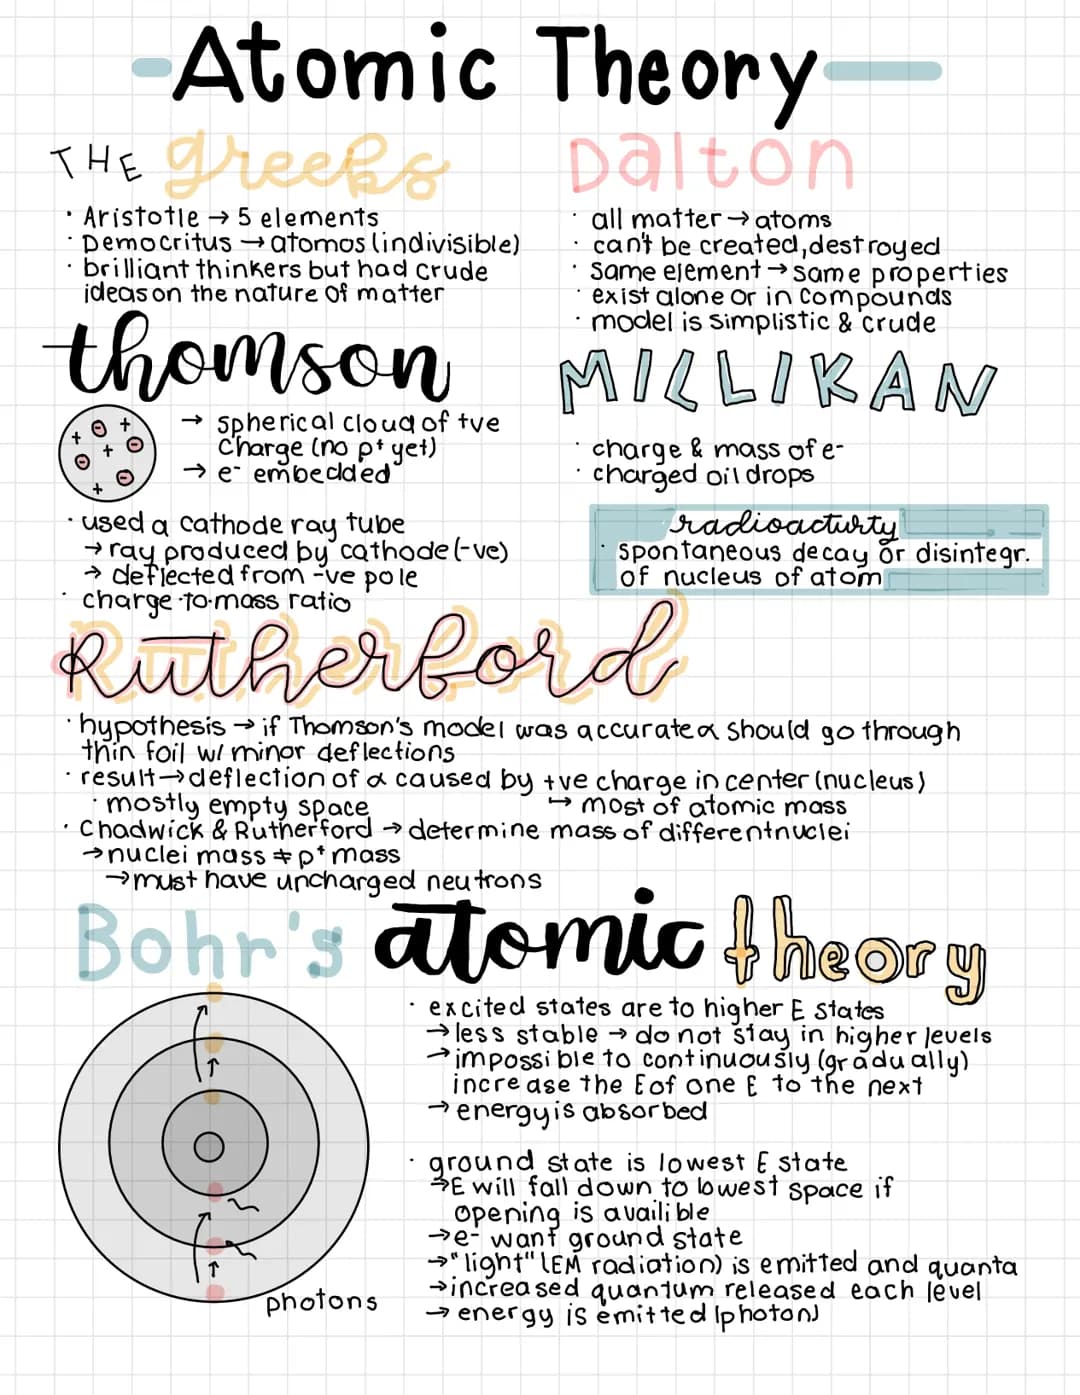 Atomic Theory
THE greeks
· Aristotle → 5 elements
· Democritus → atomos (indivisible)
· brilliant thinkers but had crude
ideas on the nature of matter
Dalton
· all matter → atoms
· can't be created, destroyed
· same element → same properties
· exist alone or in compounds
· model is simplistic & crude
thomson
→ spherical cloud of +ve
charge (no p⁺ yet)
→ e⁻ embedded
· used a cathode ray tube
→ ray produced by cathode (-ve)
→ deflected from -ve pole
· charge-to-mass ratio
MILLIKAN
· charge & mass of e-
· charged oil drops
radioactivty
· spontaneous decay or disintegr.
of nucleus of atom
Rutherford
· hypothesis → if Thomson's model was accurate α should go through
thin foil w/ minor deflections
· result → deflection of α caused by +ve charge in center (nucleus)
· mostly empty space
↳ most of atomic mass
· Chadwick & Rutherford → determine mass of different nuclei
→ nuclei mass ≠ p⁺ mass
→ must have uncharged neutrons
Bohr's atomic theory
· excited states are to higher E states
→ less stable → do not stay in higher levels
→ impossible to continuously (gradually)
increase the E of one E to the next
→ energy is absorbed
· ground state is lowest E state
→ E will fall down to lowest space if
opening is availible
→ e- want ground state
→ "light" (EM radiation) is emitted and quanta
→ increased quantum released each level
→ energy is emitted (photon)
photons